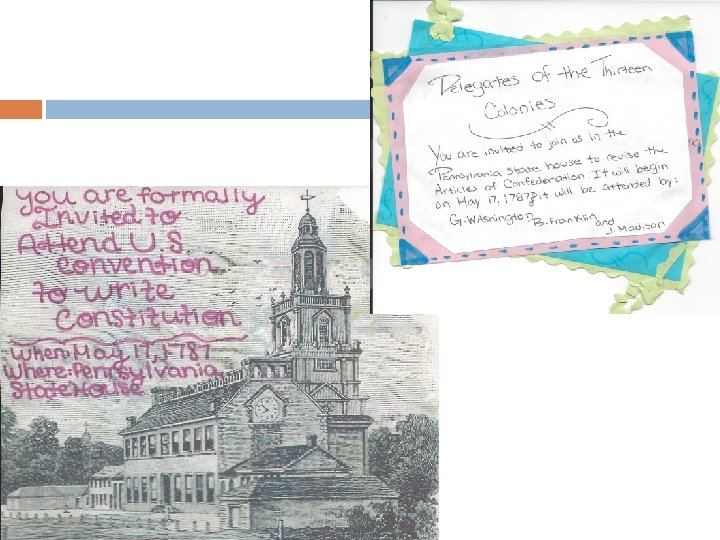 Delegates of the Thirteen
Colonies
You are invited to join us in the
Pennsylvania State house to revise the
Articles of Confederation. It will begin
on May 17, 1787 & it will be attended by:
G. Washington, B. Franklin and
J. Madison
you are formally
Invited to
Attend U.S.
convention
to write
Constitution
When: May 17, 1787
Where: Pennsylvania
State House